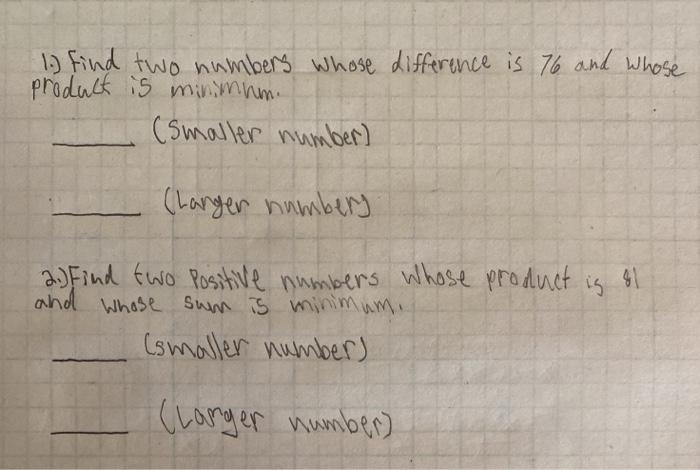 1.) Find two numbers whose difference is 76 and whose
product is minimum.
____ (smaller number)
____ (Larger number)
2.) Find two Positive numbers whose product is 81
and whose sum is minimum.
____ (smaller number)
____ (Larger number)